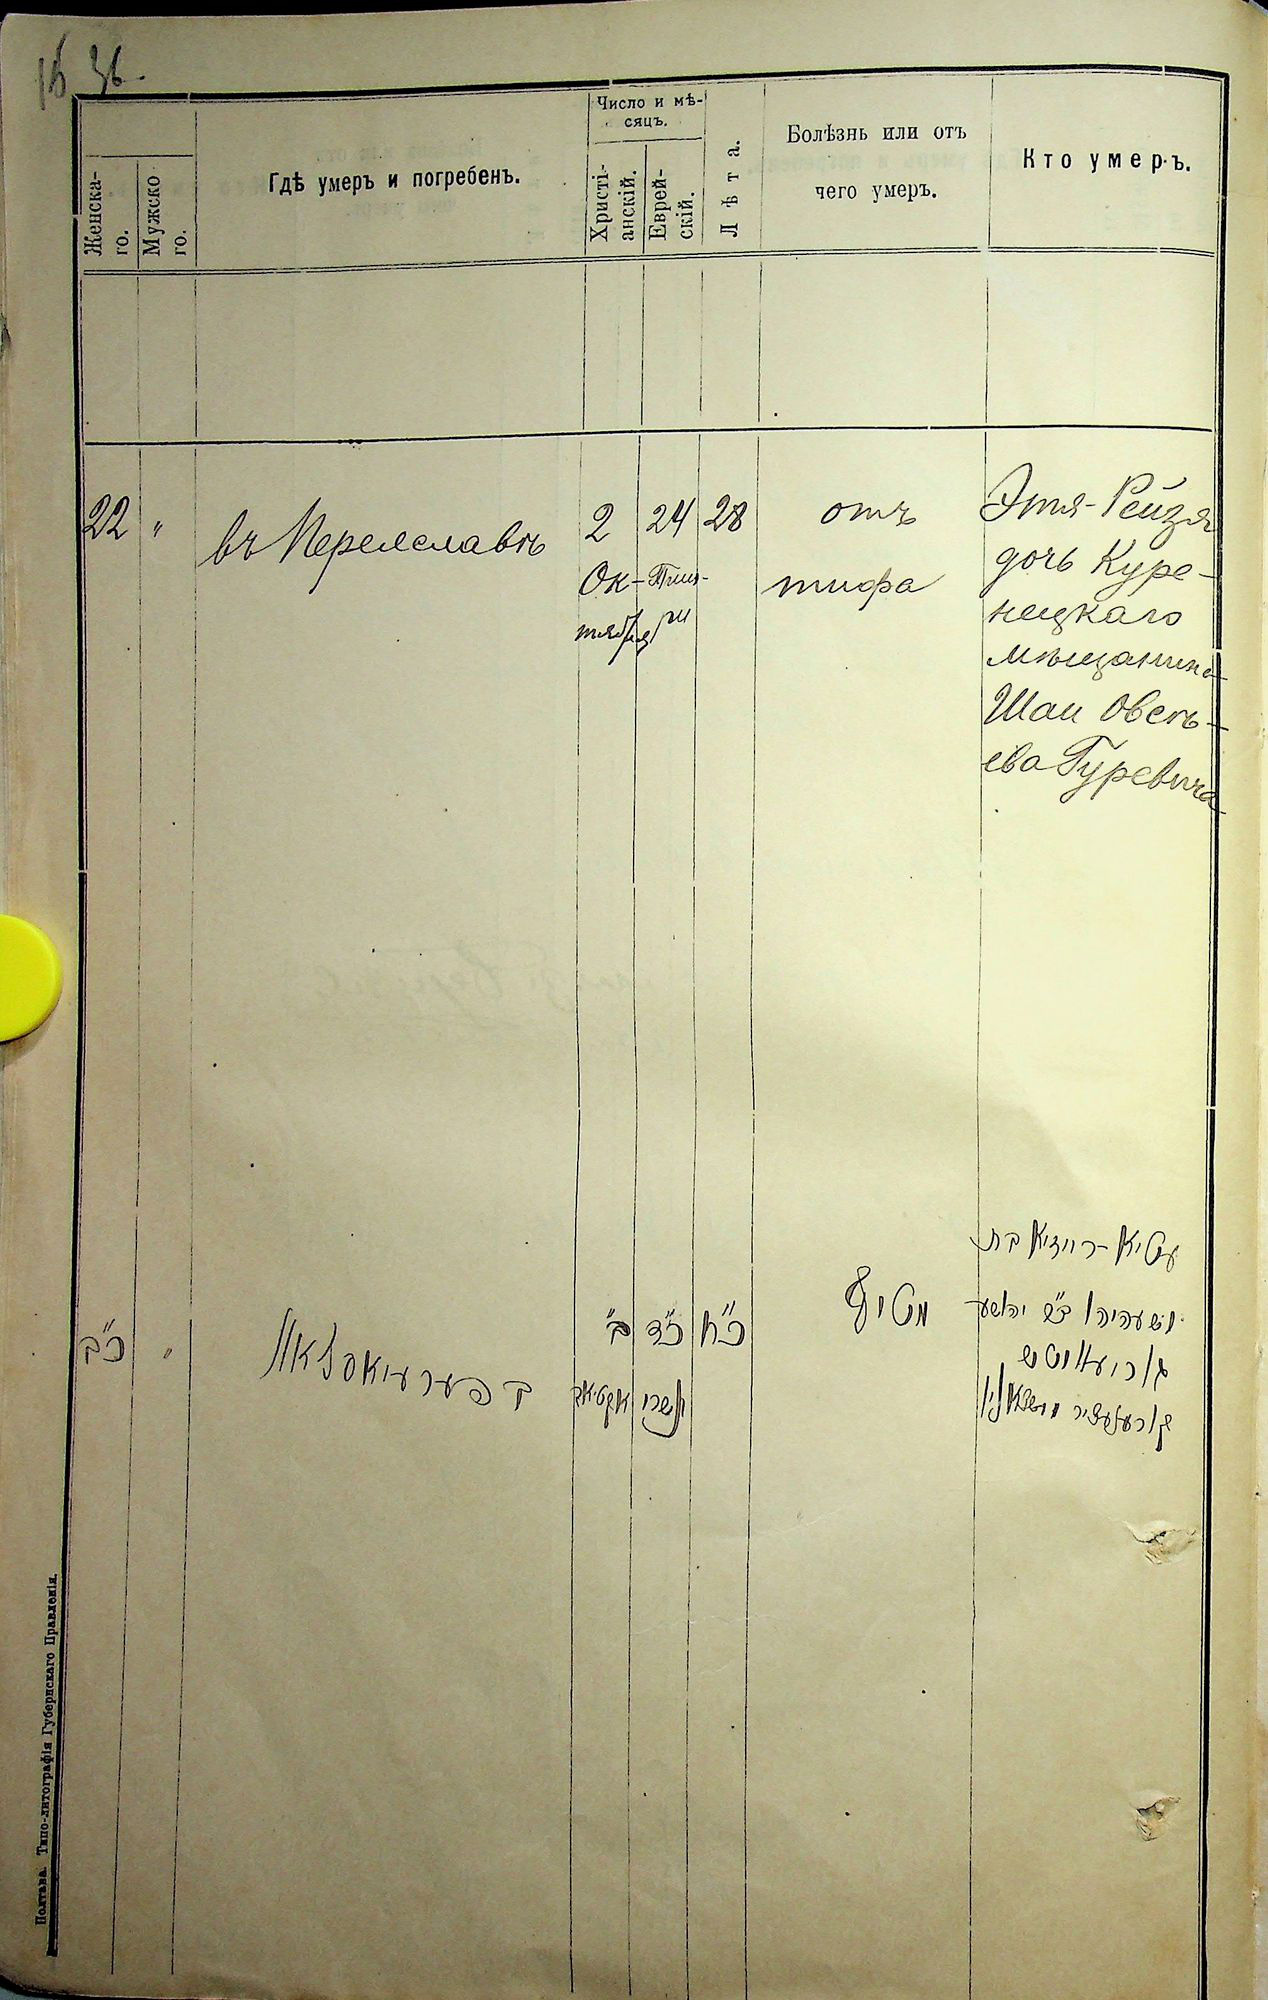 36.
Женска-
го.
Мужско
го.
Гдѣ умеръ и погребенъ.
Число и мѣ-
сяцъ.
Христі-
анскій.
Еврей-
скій.
Лѣта.
Болѣзнь или отъ
чего умеръ.
Кто умеръ.
22
"
въ Переяславѣ
2
Ок-
тября
24
Тиш-
ри
28
отъ
тифа
Этя-Рейзя
дочь Куре-
нецкаго
мѣщанина
Шаи Овсѣ-
ева Гуревича
כ"ב
"
ב
ב"
כ"ד
תשרי
כ"ח
מטיף
עטיא-רייזיא בת
Полтава. Типо-литографія Губернскаго Правленія.